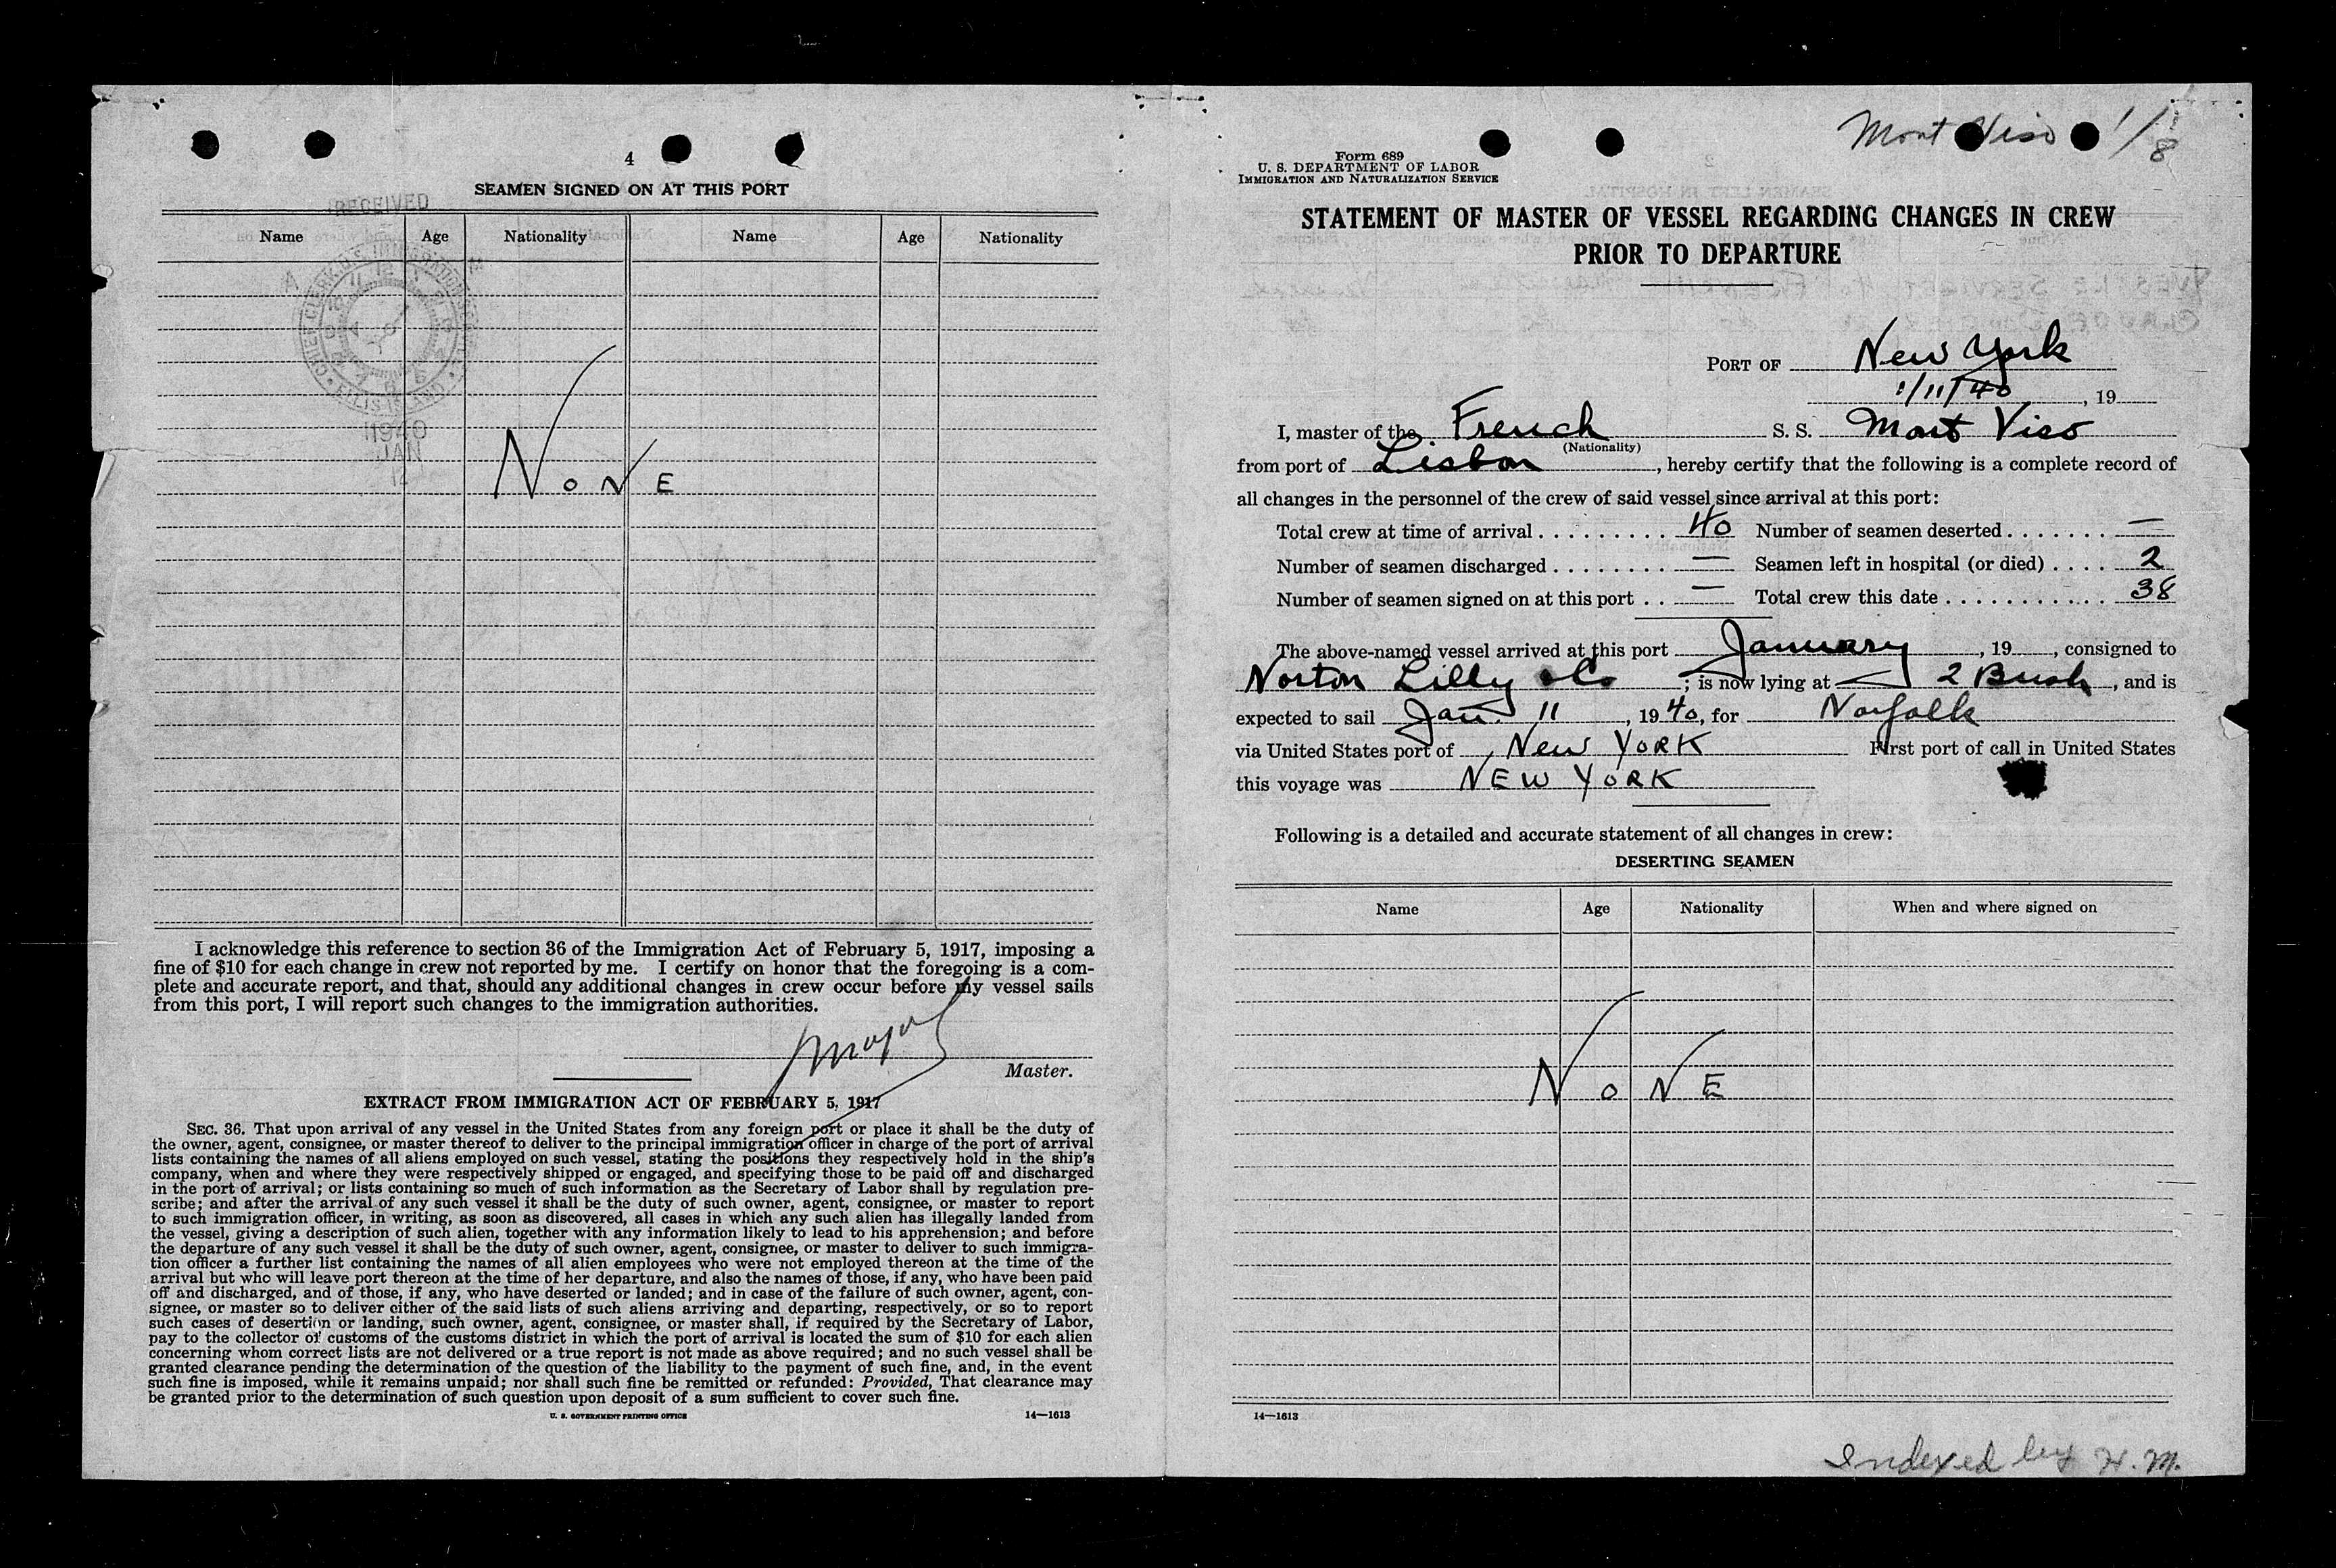 4
SEAMEN SIGNED ON AT THIS PORT
RECEIVED
Name Age Nationality Name Age Nationality
CHIEF CLERK U.S. IMMIGRATION
ELLIS ISLAND
1940
JAN
NONE
I acknowledge this reference to section 36 of the Immigration Act of February 5, 1917, imposing a
fine of $10 for each change in crew not reported by me. I certify on honor that the foregoing is a com-
plete and accurate report, and that, should any additional changes in crew occur before my vessel sails
from this port, I will report such changes to the immigration authorities.
Master.
EXTRACT FROM IMMIGRATION ACT OF FEBRUARY 5, 1917
SEC. 36. That upon arrival of any vessel in the United States from any foreign port or place it shall be the duty of
the owner, agent, consignee, or master thereof to deliver to the principal immigration officer in charge of the port of arrival
lists containing the names of all aliens employed on such vessel, stating the positions they respectively hold in the ship's
company, when and where they were respectively shipped or engaged, and specifying those to be paid off and discharged
in the port of arrival; or lists containing so much of such information as the Secretary of Labor shall by regulation pre-
scribe; and after the arrival of any such vessel it shall be the duty of such owner, agent, consignee, or master to report
to such immigration officer, in writing, as soon as discovered, all cases in which any such alien has illegally landed from
the vessel, giving a description of such alien, together with any information likely to lead to his apprehension; and before
the departure of any such vessel it shall be the duty of such owner, agent, consignee, or master to deliver to such immigra-
tion officer a further list containing the names of all alien employees who were not employed thereon at the time of the
arrival but who will leave port thereon at the time of her departure, and also the names of those, if any, who have been paid
off and discharged, and of those, if any, who have deserted or landed; and in case of the failure of such owner, agent, con-
signee, or master so to deliver either of the said lists of such aliens arriving and departing, respectively, or so to report
such cases of desertion or landing, such owner, agent, consignee, or master shall, if required by the Secretary of Labor,
pay to the collector of customs of the customs district in which the port of arrival is located the sum of $10 for each alien
concerning whom correct lists are not delivered or a true report is not made as above required; and no such vessel shall be
granted clearance pending the determination of the question of the liability to the payment of such fine, and, in the event
such fine is imposed, while it remains unpaid; nor shall such fine be remitted or refunded: Provided, That clearance may
be granted prior to the determination of such question upon deposit of a sum sufficient to cover such fine.
U. S. GOVERNMENT PRINTING OFFICE 14—1613
Mont Viso 1/8
Form 689
U. S. DEPARTMENT OF LABOR
IMMIGRATION AND NATURALIZATION SERVICE
STATEMENT OF MASTER OF VESSEL REGARDING CHANGES IN CREW
PRIOR TO DEPARTURE
PORT OF New York
1/11/40, 19
I, master of the French S. S. Mont Viso
(Nationality)
from port of Lisbon, hereby certify that the following is a complete record of
all changes in the personnel of the crew of said vessel since arrival at this port:
Total crew at time of arrival . . . . . . . . . . 40 Number of seamen deserted . . . . . . . —
Number of seamen discharged . . . . . . . . — Seamen left in hospital (or died) . . . . 2
Number of seamen signed on at this port . . — Total crew this date . . . . . . . . . . . . 38
The above-named vessel arrived at this port January, 19, consigned to
Norton Lilly & Co; is now lying at 2 Bush, and is
expected to sail Jan. 11, 1940, for Norfolk
via United States port of New YORK First port of call in United States
this voyage was NEW YORK
Following is a detailed and accurate statement of all changes in crew:
DESERTING SEAMEN
Name Age Nationality When and where signed on
NONE
14—1613
Indexed by H. M.